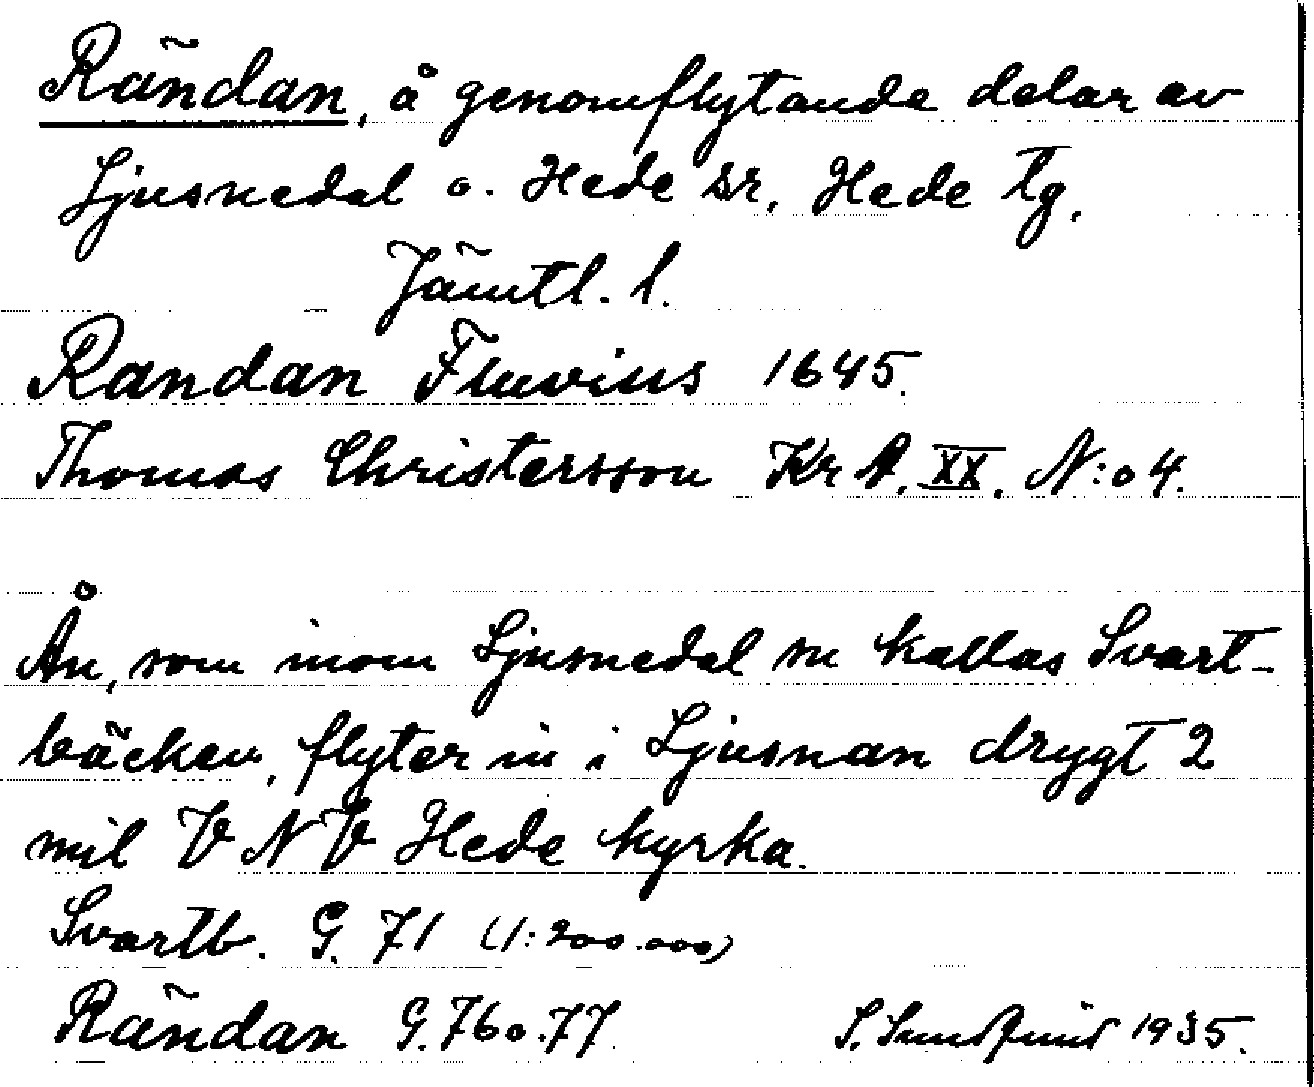 Rändan, å genomflytande delar av
Ljusnedal o. Hede snr, Hede tg.
Jämtl. l.
Randan Fluvius 1645.
Thomas Christersson Kr A. XX. N:o 4.
Ån, som inom Ljusnedal sn kallas Svart-
bäcken, flyter in i Ljusnan drygt 2
mil V N V Hede kyrka.
Svartb. G. 71 (1:200.000)
Rändan G. 76 o. 77 1935.